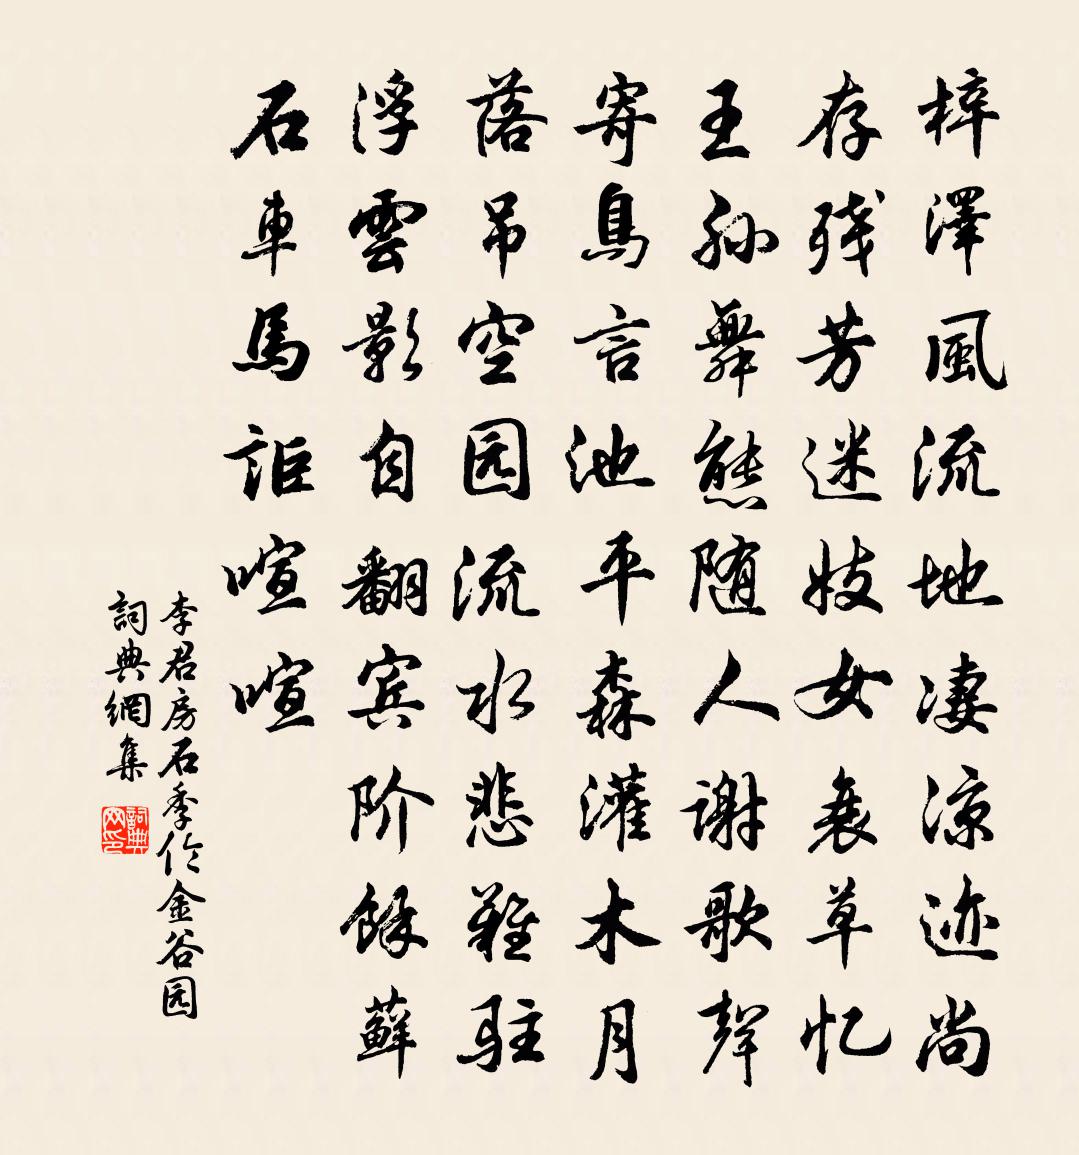 梓澤風流地凄涼迹尚
存残芳迷妓女衰草忆
王孙舞態随人謝歌聲
寄鳥言池平森灌木月
落吊空园流水悲難駐
浮雲影自翻宾阶餘蘚
石車馬詎喧喧
李君房石季伦金谷园
詞典網集
詞典网印